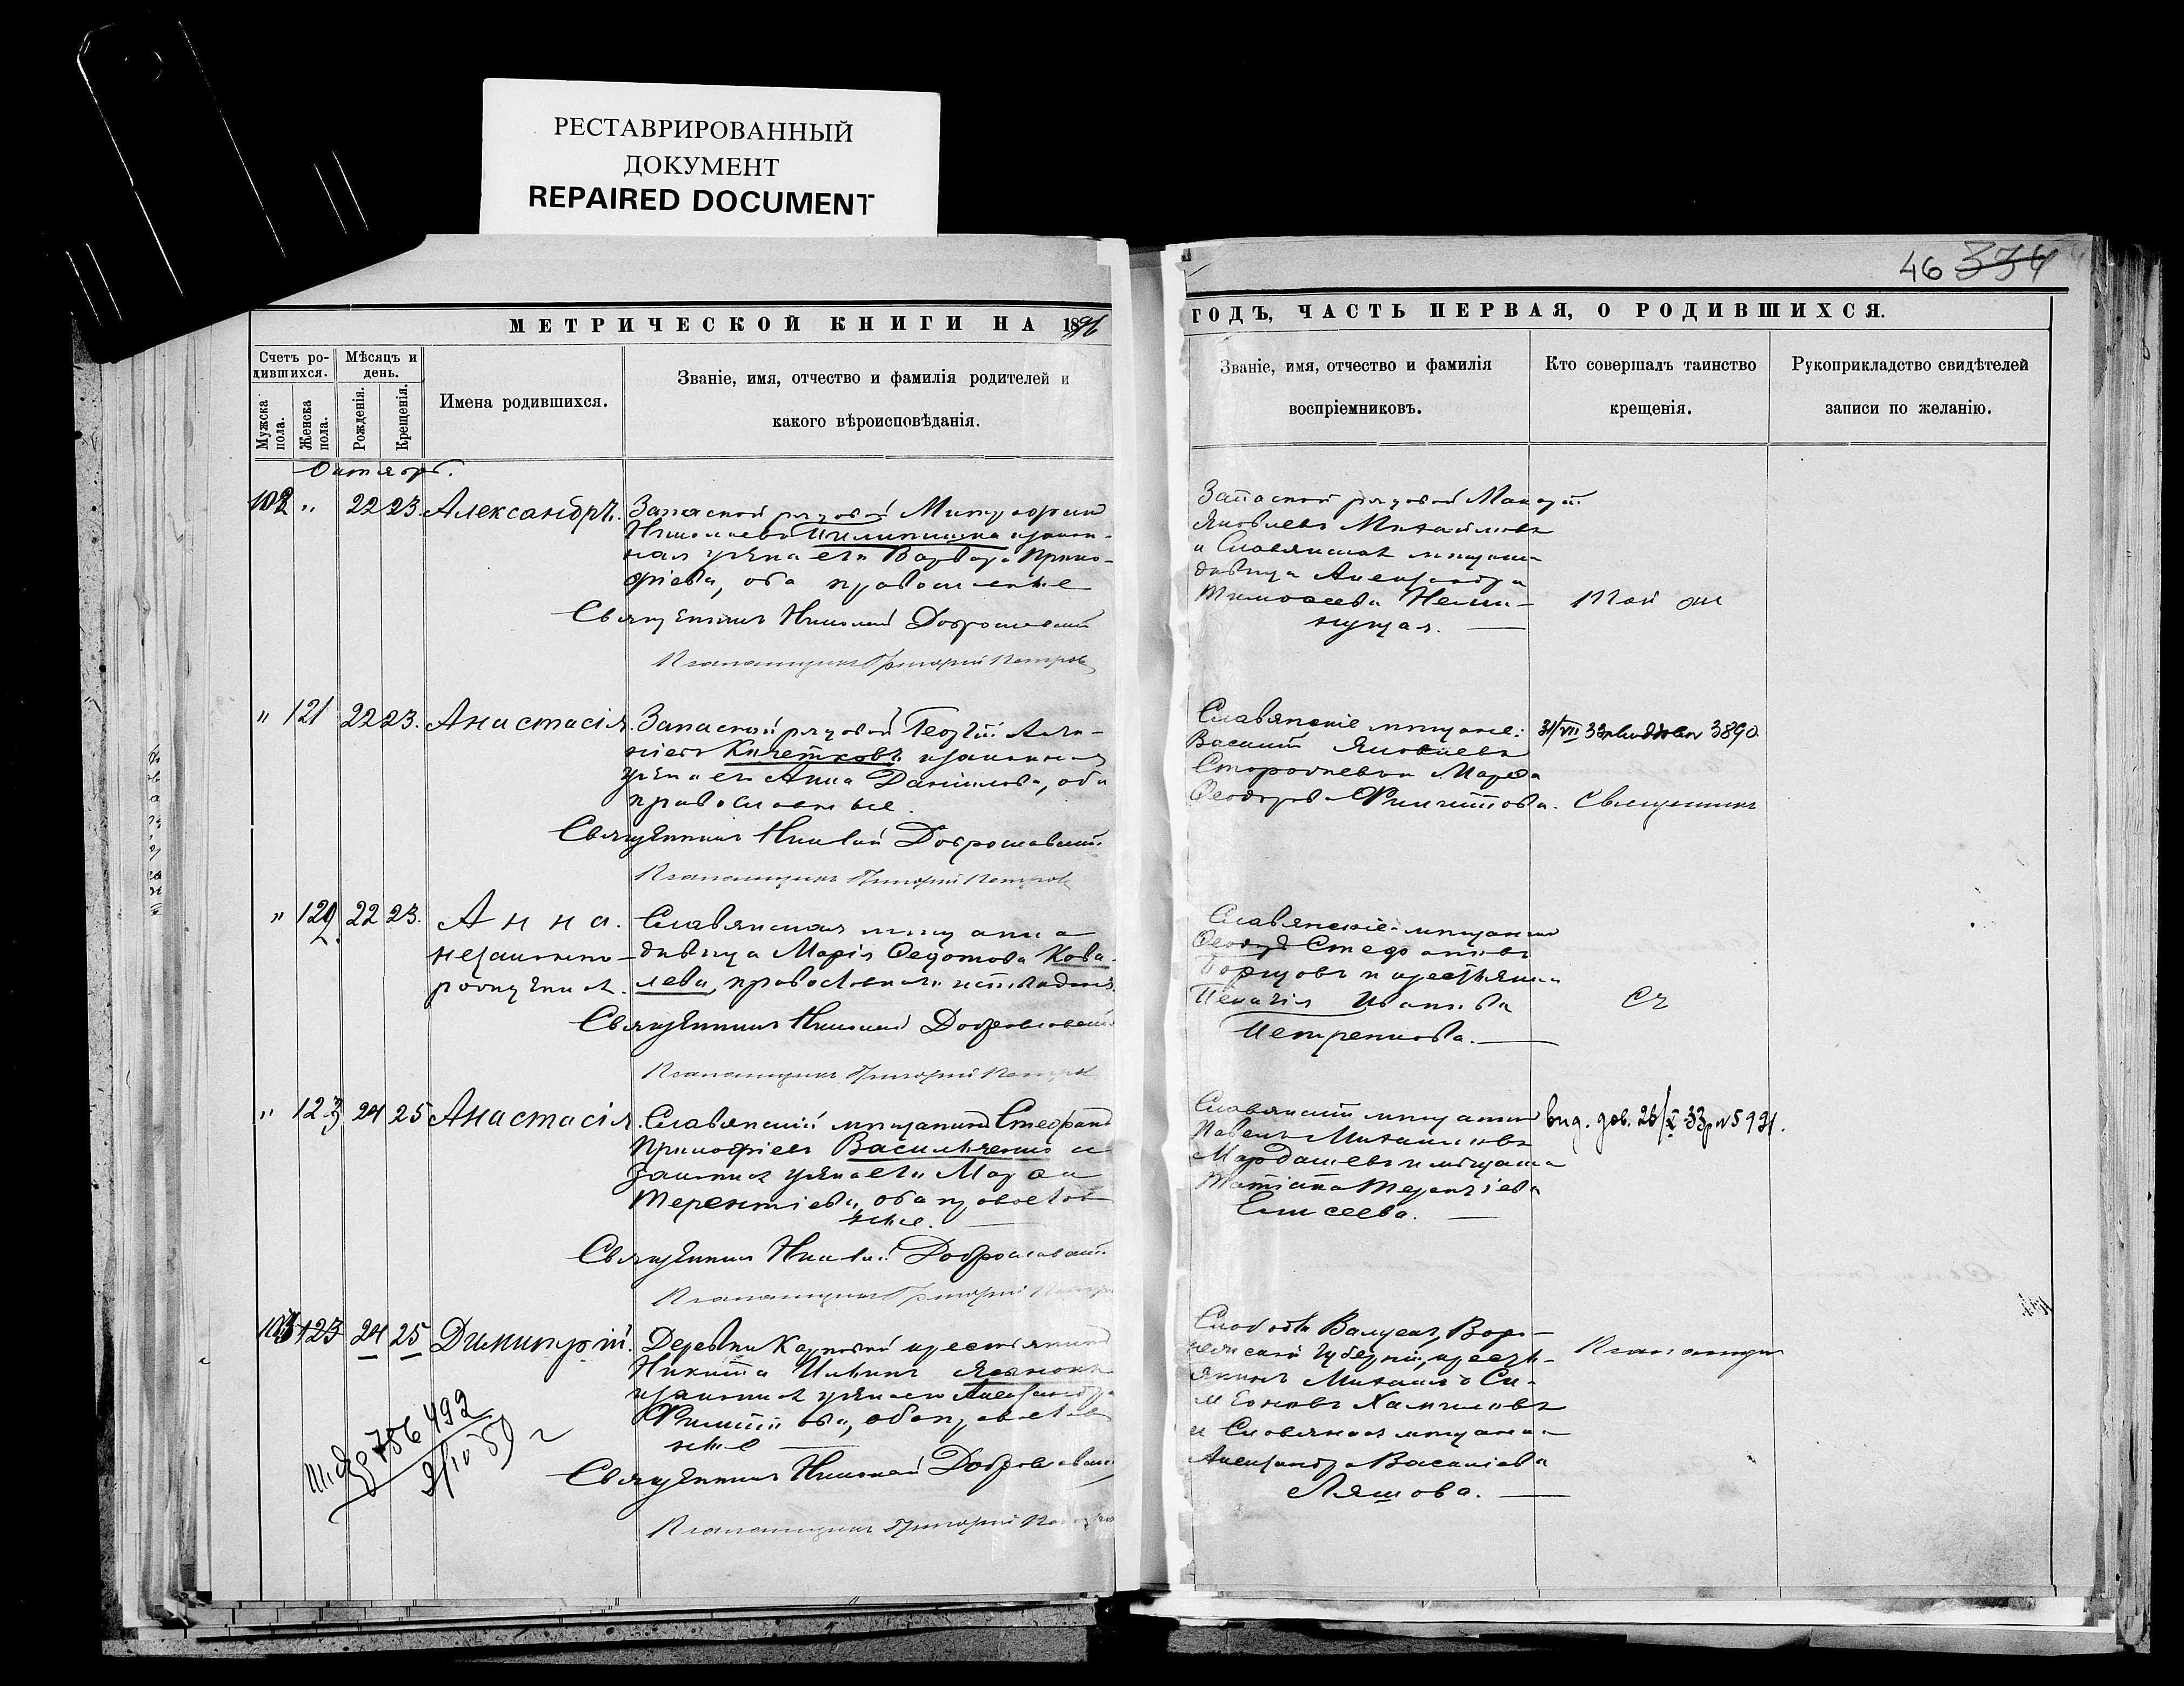 РЕСТАВРИРОВАННЫЙ
ДОКУМЕНТ
REPAIRED DOCUMENT
46 334
МЕТРИЧЕСКОЙ КНИГИ НА 1896
ГОДЪ, ЧАСТЬ ПЕРВАЯ, О РОДИВШИХСЯ.
Счетъ ро-
дившихся.
Мѣсяцъ и
день.
Мужска
пола.
Женска
пола.
Рожденія.
Крещенія.
Имена родившихся.
Званіе, имя, отчество и фамилія родителей и
какого вѣроисповѣданія.
Званіе, имя, отчество и фамилія
воспріемниковъ.
Кто совершалъ таинство
крещенія.
Рукоприкладство свидѣтелей
записи по желанію.
Октябрь.
102 " 22 23. Александръ.
Запасной рядовой
жена его Варвара Проко-
фіева, оба православные
Священникъ Николай Доброславскій
Псаломщикъ Григорій Петровъ
Запасной рядовой
Яковлевъ Михайловъ
и Славянская мѣщан.
дѣвица Александра
Тимофеева
" 121 22 23. Анастасія.
Запасной рядовой Георгій
Кочетковъ и законная
жена его Анна Данилова, оба
православные.
Священникъ Николай Доброславскій
Псаломщикъ Григорій Петровъ
Славянскіе мѣщане:
Василій Яковлевъ
Марѳа
Ѳеодорова Филиппова.
31/VII 33 3890
Священникъ
" 122 22 23. Анна.
незаконно-
рожденная.
Славянская мѣщанка
дѣвица Марія Ѳедотова Кова-
лева, православнаго исповѣданія.
Священникъ Николай Доброславскій
Псаломщикъ Григорій Петровъ
Славянскіе мѣщанинъ
Ѳеодоръ Стефановъ
Борщовъ и крестьянка
Пелагія Иванова
Петренкова.
" 123 24 25 Анастасія.
Славянскій мѣщанинъ Стефанъ
Прокофіевъ Васильченко и
законная жена его Марѳа
Терентіева, оба православ-
ные.
Священникъ Николай Доброславскій
Псаломщикъ Григорій Петровъ
Славянскій мѣщанинъ
Павелъ Михайловъ
Мардашевъ и мѣщанка
Татіана Терентіева
Елисеева.
вид. дов. 26/X 33р №5931.
103 123 24 25 Димитрій.
Деревни Карповки крестьянинъ
Никита Ильинъ
законная жена его Александра
Филиппова, оба православ-
ные
Священникъ Николай Доброславскій
Псаломщикъ Григорій Петровъ
756 492
9/IV 59
Слободы Валуекъ, Воро-
нежской губерніи, кресть-
янинъ Михаилъ Си-
меоновъ
и Славянская мѣщанка
Александра Васильева
Ляшова.
Псаломщикъ